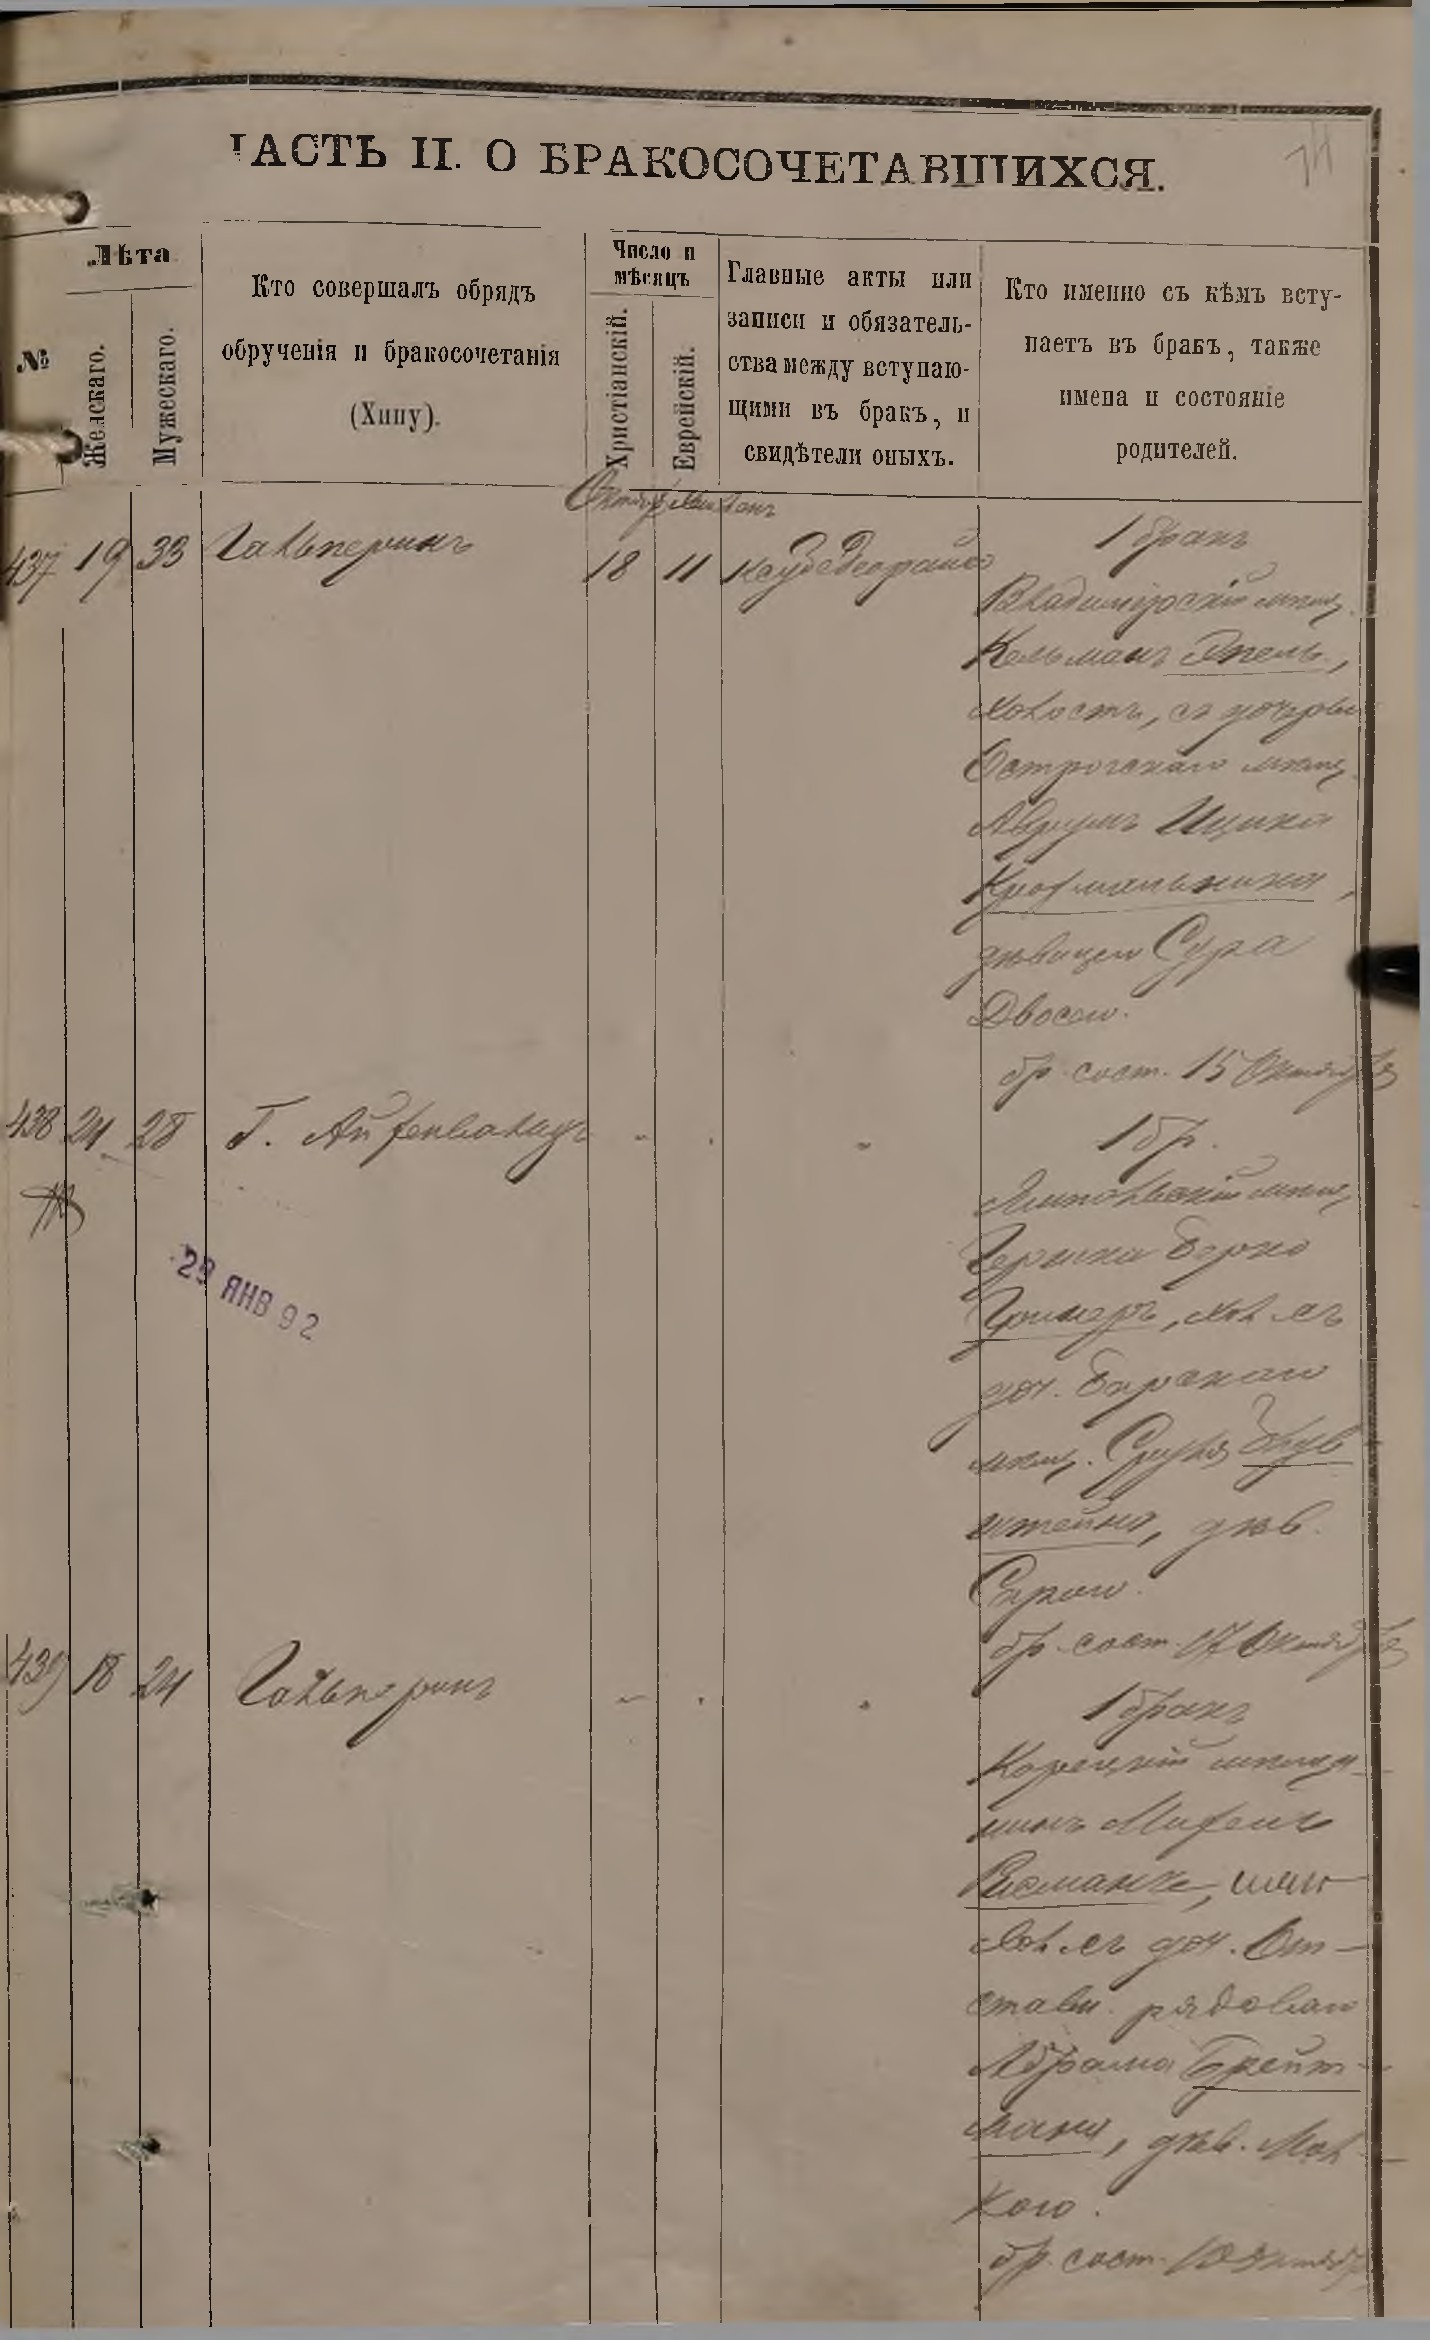 ЧАСТЬ II. О БРАКОСОЧЕТАВШИХСЯ.
74
№
Лѣта
Женскаго.
Мужескаго.
Кто совершалъ обрядъ
обрученія и бракосочетанія
(Хипу).
Число и
мѣсяцъ
Христіанскій.
Еврейскій.
Главные акты или
записи и обязатель-
ства между вступаю-
щими въ бракъ, и
свидѣтели оныхъ.
Кто именно съ кѣмъ всту-
паетъ въ бракъ, также
имена и состояніе
родителей.
437 19 33 Гальперинъ
18 11
1 бракъ
Владимірскій мѣщ.
Кельманъ Апель,
холостъ, съ дочерью
Острогскаго мѣщ.
Аврумъ Ицика
Крофмальника,
дѣвицею Сура
Двосею.
бр. сост. 15 Октября
438 24 28 Г. Айзенвальдъ
1 бр.
мѣщ.
Гершка Берко
, хол. съ
доч. Барскаго
мѣщ. Сруля
штейна, дѣв.
Сарою.
бр. сост. 17 Октября
29 ЯНВ 92
439 18 24 Гальперинъ
1 бракъ
Корецкій мѣща-
нинъ
хол. съ доч. От-
ставн. рядоваго
Абрама Брейт-
мана, дѣв. Мал-
кою.
бр. сост. 18 Октяб.